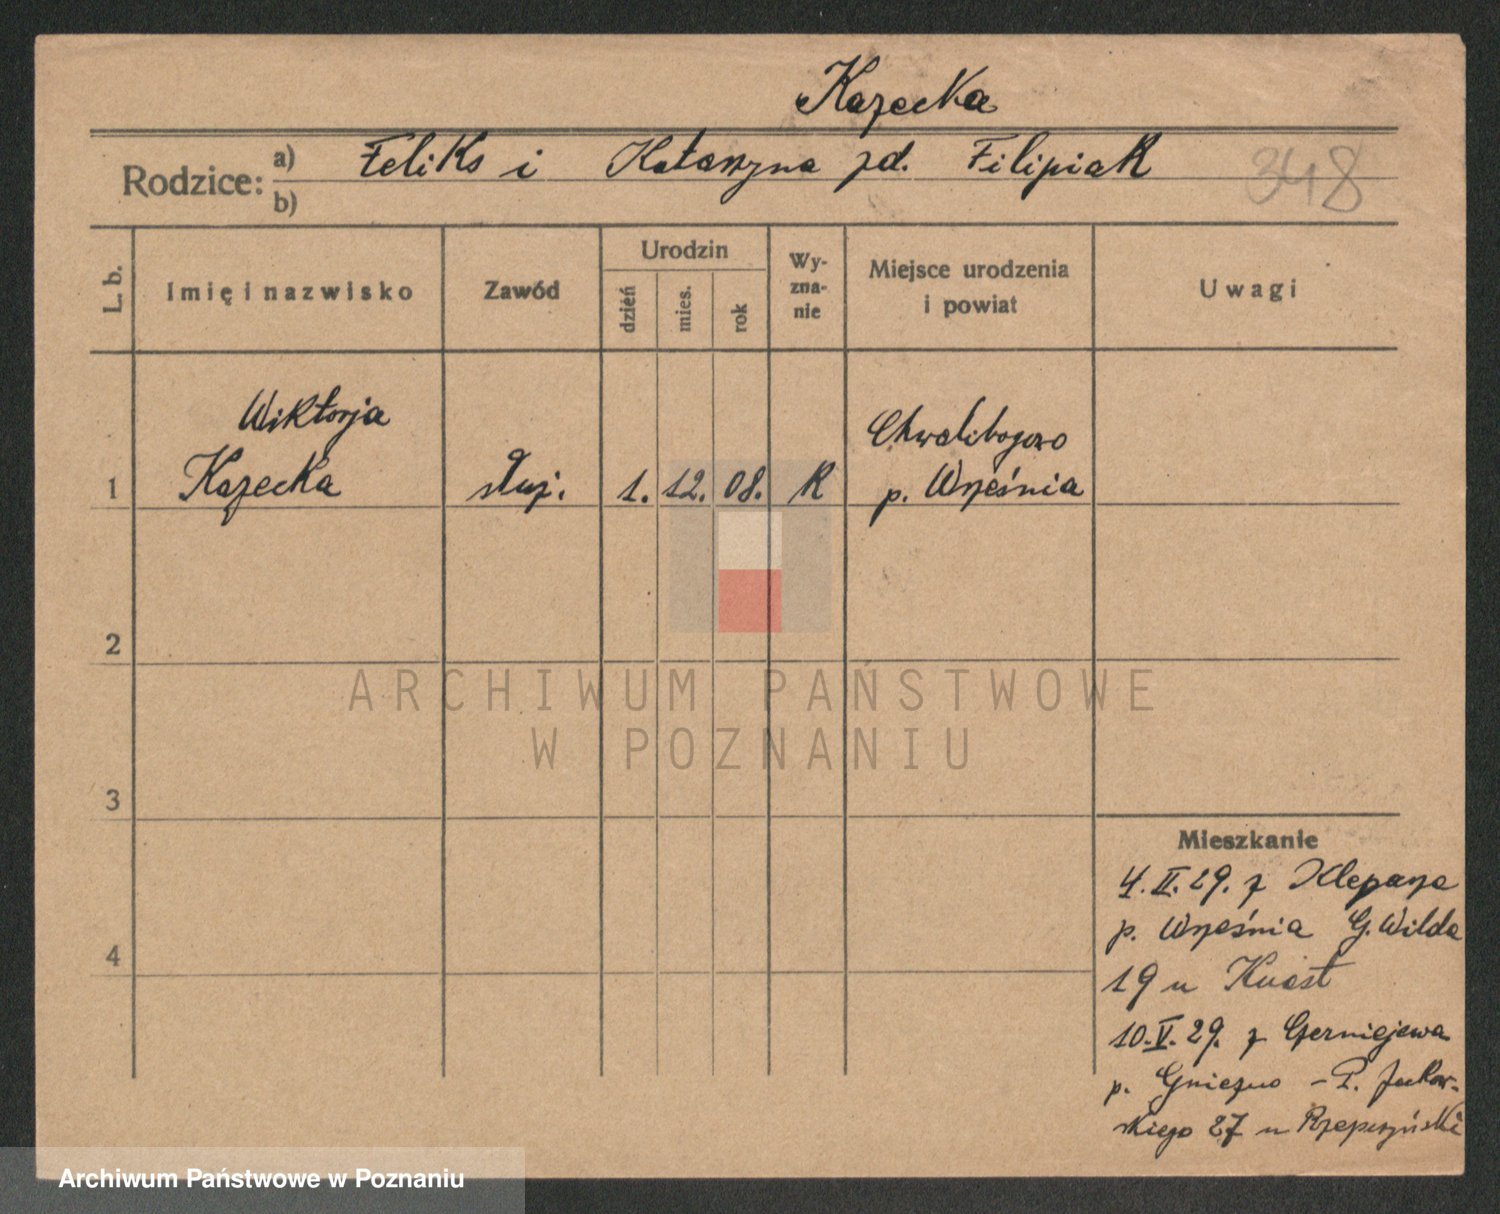 Kazecka
Rodzice: a) Feliks i Katarzyna zd. Filipiak
b)
348
L. b.
Imię i nazwisko
Zawód
Urodzin
dzień
mies.
rok
Wy-
zna-
nie
Miejsce urodzenia
i powiat
Uwagi
Wiktorja
Chwalibogowo
1 Kazecka służ. 1. 12. 08. K p. Września
2
3
4
Mieszkanie
4. II. 29. z Kleparza
p. Września G. Wilda
19 u Kwast
10. V. 29. z Czerniejewa
p. Gniezno – P. Jackow-
skiego 27 u Rzepczyński
ARCHIWUM PAŃSTWOWE
W POZNANIU
Archiwum Państwowe w Poznaniu